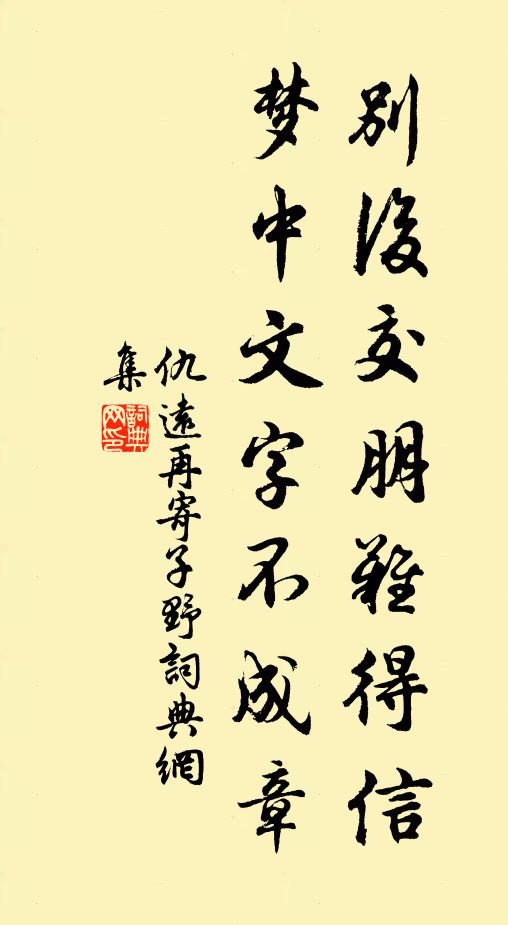 別後交朋難得信
梦中文字不成章
仇遠再寄子野詞典網
集
詞典
网印